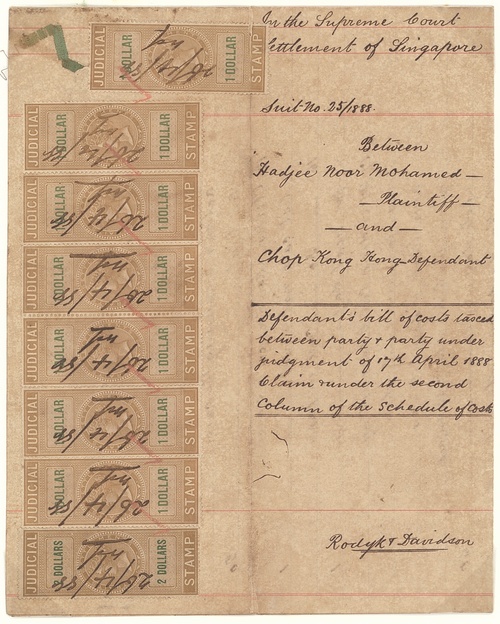 In the Supreme Court
Settlement of Singapore
Suit No. 25/1888.
Between
Hadjee Noor Mohamed —
— Plaintiff —
— and —
Chop Kong Hong Defendant
Defendant's bill of costs taxed
between party & party under
judgment of 17th April 1888
Claim & under the second
Column of the Schedule of Costs
Rodyk & Davidson
JUDICIAL
1 DOLLAR
1 DOLLAR
STAMP
26/4/88
JUDICIAL
1 DOLLAR
1 DOLLAR
STAMP
26/4/88
JUDICIAL
1 DOLLAR
1 DOLLAR
STAMP
26/4/88
JUDICIAL
1 DOLLAR
1 DOLLAR
STAMP
26/4/88
JUDICIAL
1 DOLLAR
1 DOLLAR
STAMP
26/4/88
JUDICIAL
1 DOLLAR
1 DOLLAR
STAMP
26/4/88
JUDICIAL
1 DOLLAR
1 DOLLAR
STAMP
26/4/88
JUDICIAL
2 DOLLARS
2 DOLLARS
STAMP
26/4/88